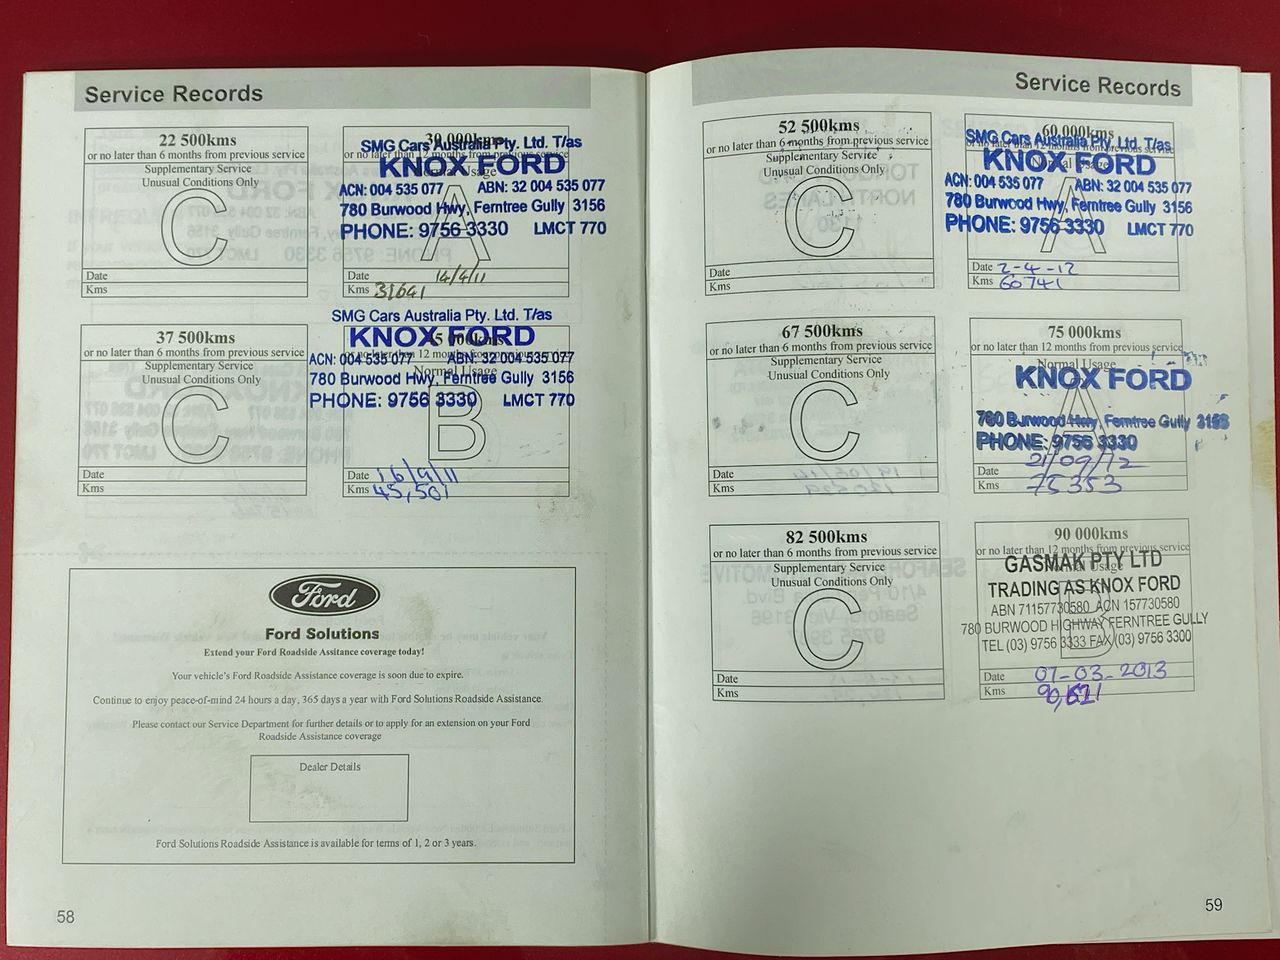 Service Records
22 500kms
or no later than 6 months from previous service
Supplementary Service
Unusual Conditions Only
C
Date
Kms
30 000kms
or no later than 12 months from previous service
Normal Usage
A
SMG Cars Australia Pty. Ltd. T/as
KNOX FORD
ACN: 004 535 077 ABN: 32 004 535 077
780 Burwood Hwy, Ferntree Gully 3156
PHONE: 9756 3330 LMCT 770
Date 14/4/11
Kms 31641
37 500kms
or no later than 6 months from previous service
Supplementary Service
Unusual Conditions Only
C
Date
Kms
SMG Cars Australia Pty. Ltd. T/as
KNOX FORD
45 000kms
or no later than 12 months from previous service
Normal Usage
B
ACN: 004 535 077 ABN: 32 004 535 077
780 Burwood Hwy, Ferntree Gully 3156
PHONE: 9756 3330 LMCT 770
Date 16/9/11
Kms 45,501
Ford
Ford Solutions
Extend your Ford Roadside Assitance coverage today!
Your vehicle's Ford Roadside Assistance coverage is soon due to expire.
Continue to enjoy peace-of-mind 24 hours a day, 365 days a year with Ford Solutions Roadside Assistance.
Please contact our Service Department for further details or to apply for an extension on your Ford
Roadside Assistance coverage
Dealer Details
Ford Solutions Roadside Assistance is available for terms of 1, 2 or 3 years.
58
Service Records
52 500kms
or no later than 6 months from previous service
Supplementary Service
Unusual Conditions Only
C
Date
Kms
60 000kms
Normal Usage
A
SMG Cars Australia Pty. Ltd. T/as
KNOX FORD
ACN: 004 535 077 ABN: 32 004 535 077
780 Burwood Hwy, Ferntree Gully 3156
PHONE: 9756 3330 LMCT 770
Date 2-4-12
Kms 60741
67 500kms
or no later than 6 months from previous service
Supplementary Service
Unusual Conditions Only
C
Date
Kms
75 000kms
or no later than 12 months from previous service
Normal Usage
A
KNOX FORD
780 Burwood Hwy, Ferntree Gully 3156
PHONE: 9756 3330
Date 21/09/12
Kms 75353
82 500kms
or no later than 6 months from previous service
Supplementary Service
Unusual Conditions Only
C
Date
Kms
90 000kms
or no later than 12 months from previous service
Normal Usage
B
GASMAK PTY LTD
TRADING AS KNOX FORD
ABN 71157730580 ACN 157730580
780 BURWOOD HIGHWAY FERNTREE GULLY
TEL (03) 9756 3333 FAX (03) 9756 3300
Date 07-03-2013
Kms
59